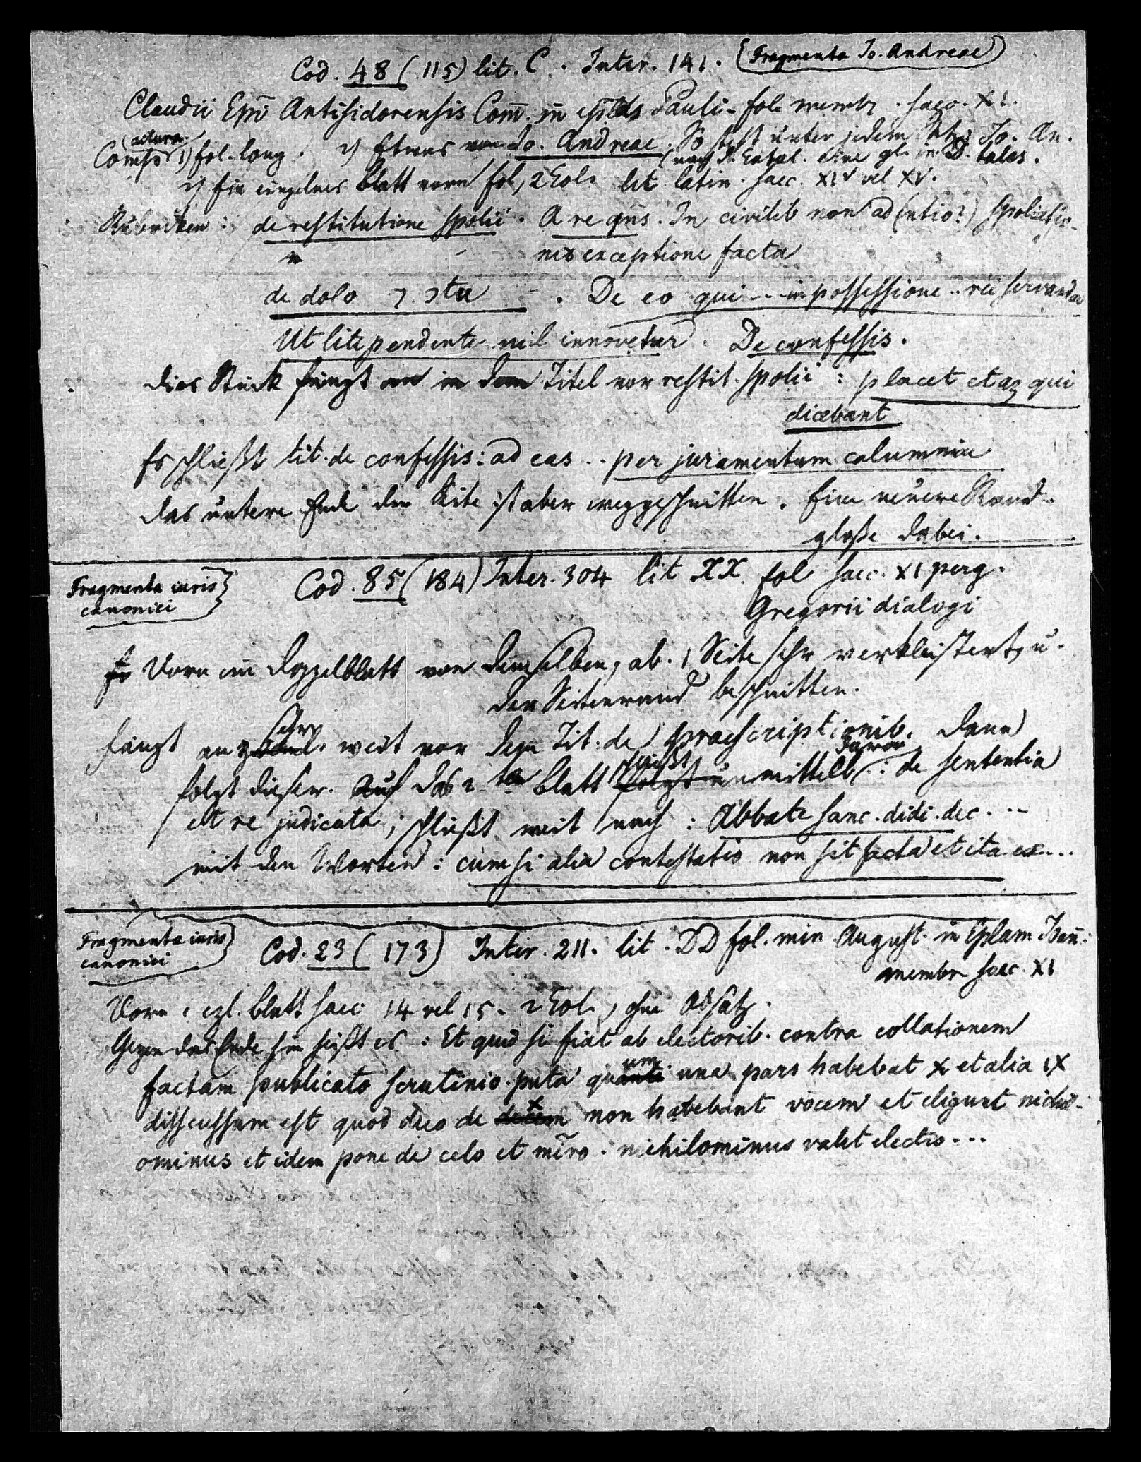 Cod. 48 (115) lit. C. Inter. 141. (Fragmenta Io. Andreae)
Claudii Epī Antisidorensis Com̄. in eplas Pauli. fol. membr. saec. XI.
adura
1) fol. long. 2) Etwas von Jo. Andreae. So steht unter jedem Absatz Jo. An.
2) Ein einzelnes Blatt vorn fol, 2 Col. lit latin. saec. XIV vel XV.
Rubriken: de restitutione spolii. A re qns. In civilib non ad (ntio?)
exceptione facta
de dolo ⁊ ɔtu . De eo qui .. in possessione .. rei servandae
Ut lite pendente nil innovetur. De confessis.
dies Stück fängt an in dem Titel von restit. spolii: placet etaz qui
dicebant
Es schließt tit. de confessis: ad eas .. per juramentum calumnie
das untere Ende der Seite ist aber weggeschnitten. Eine neuere Rand-
gloße dabei.
Fragmenta iuris
canonici
Cod. 85 (184) Inter. 304 lit XX. fol saec. XI perg.
Gregorii dialogi
Vorn ein Doppelblatt von demselben, ab. 1 Seite sehr verkleistert, u.
der Seitenrand beschnitten.
sehr
fängt an weit vor dem Tit: de praescriptionib. dann
folgt dieser. Auch das 2te Blatt unmittelb. : de sententia
et re judicata, schließt weit nach: Abbate sanc. didi. dec. ...
mit den Worten: cum si alia contestatio non sit facta et ita ex...
Fragmenta iuris
canonici
Cod. 23 (173) Inter. 211. lit. DD fol. min August. in Eplam Ioan̄:
membr saec. XI
Vorn 1 ezl. Blatt saec 14 vel 15. 2 Col., ohne Absatz.
Gegen das Ende hin heißt es: Et quid si fiat ab electorib. contra collationem
factam publicato scrutinio. puta quum una pars habebat X et alia IX
discussum est quod dico de X non habebant vocem et eligunt nichil-
ominus et idem pone de celo et mr̄o. nichilominus valet electio...